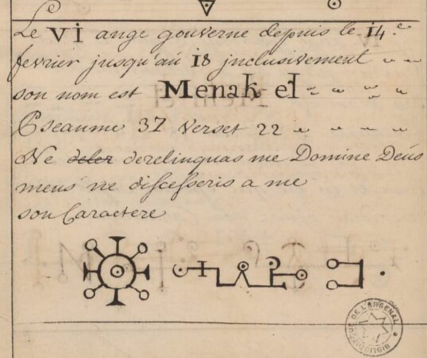 Le VI ange gouverne depuis le 14.e
fevrier jusqu'au 18 inclusivement
son nom est Menak el
Pseaume 37 verset 22
Ne derelinquas me Domine Deus
meus ne discesseris a me
son Caractere